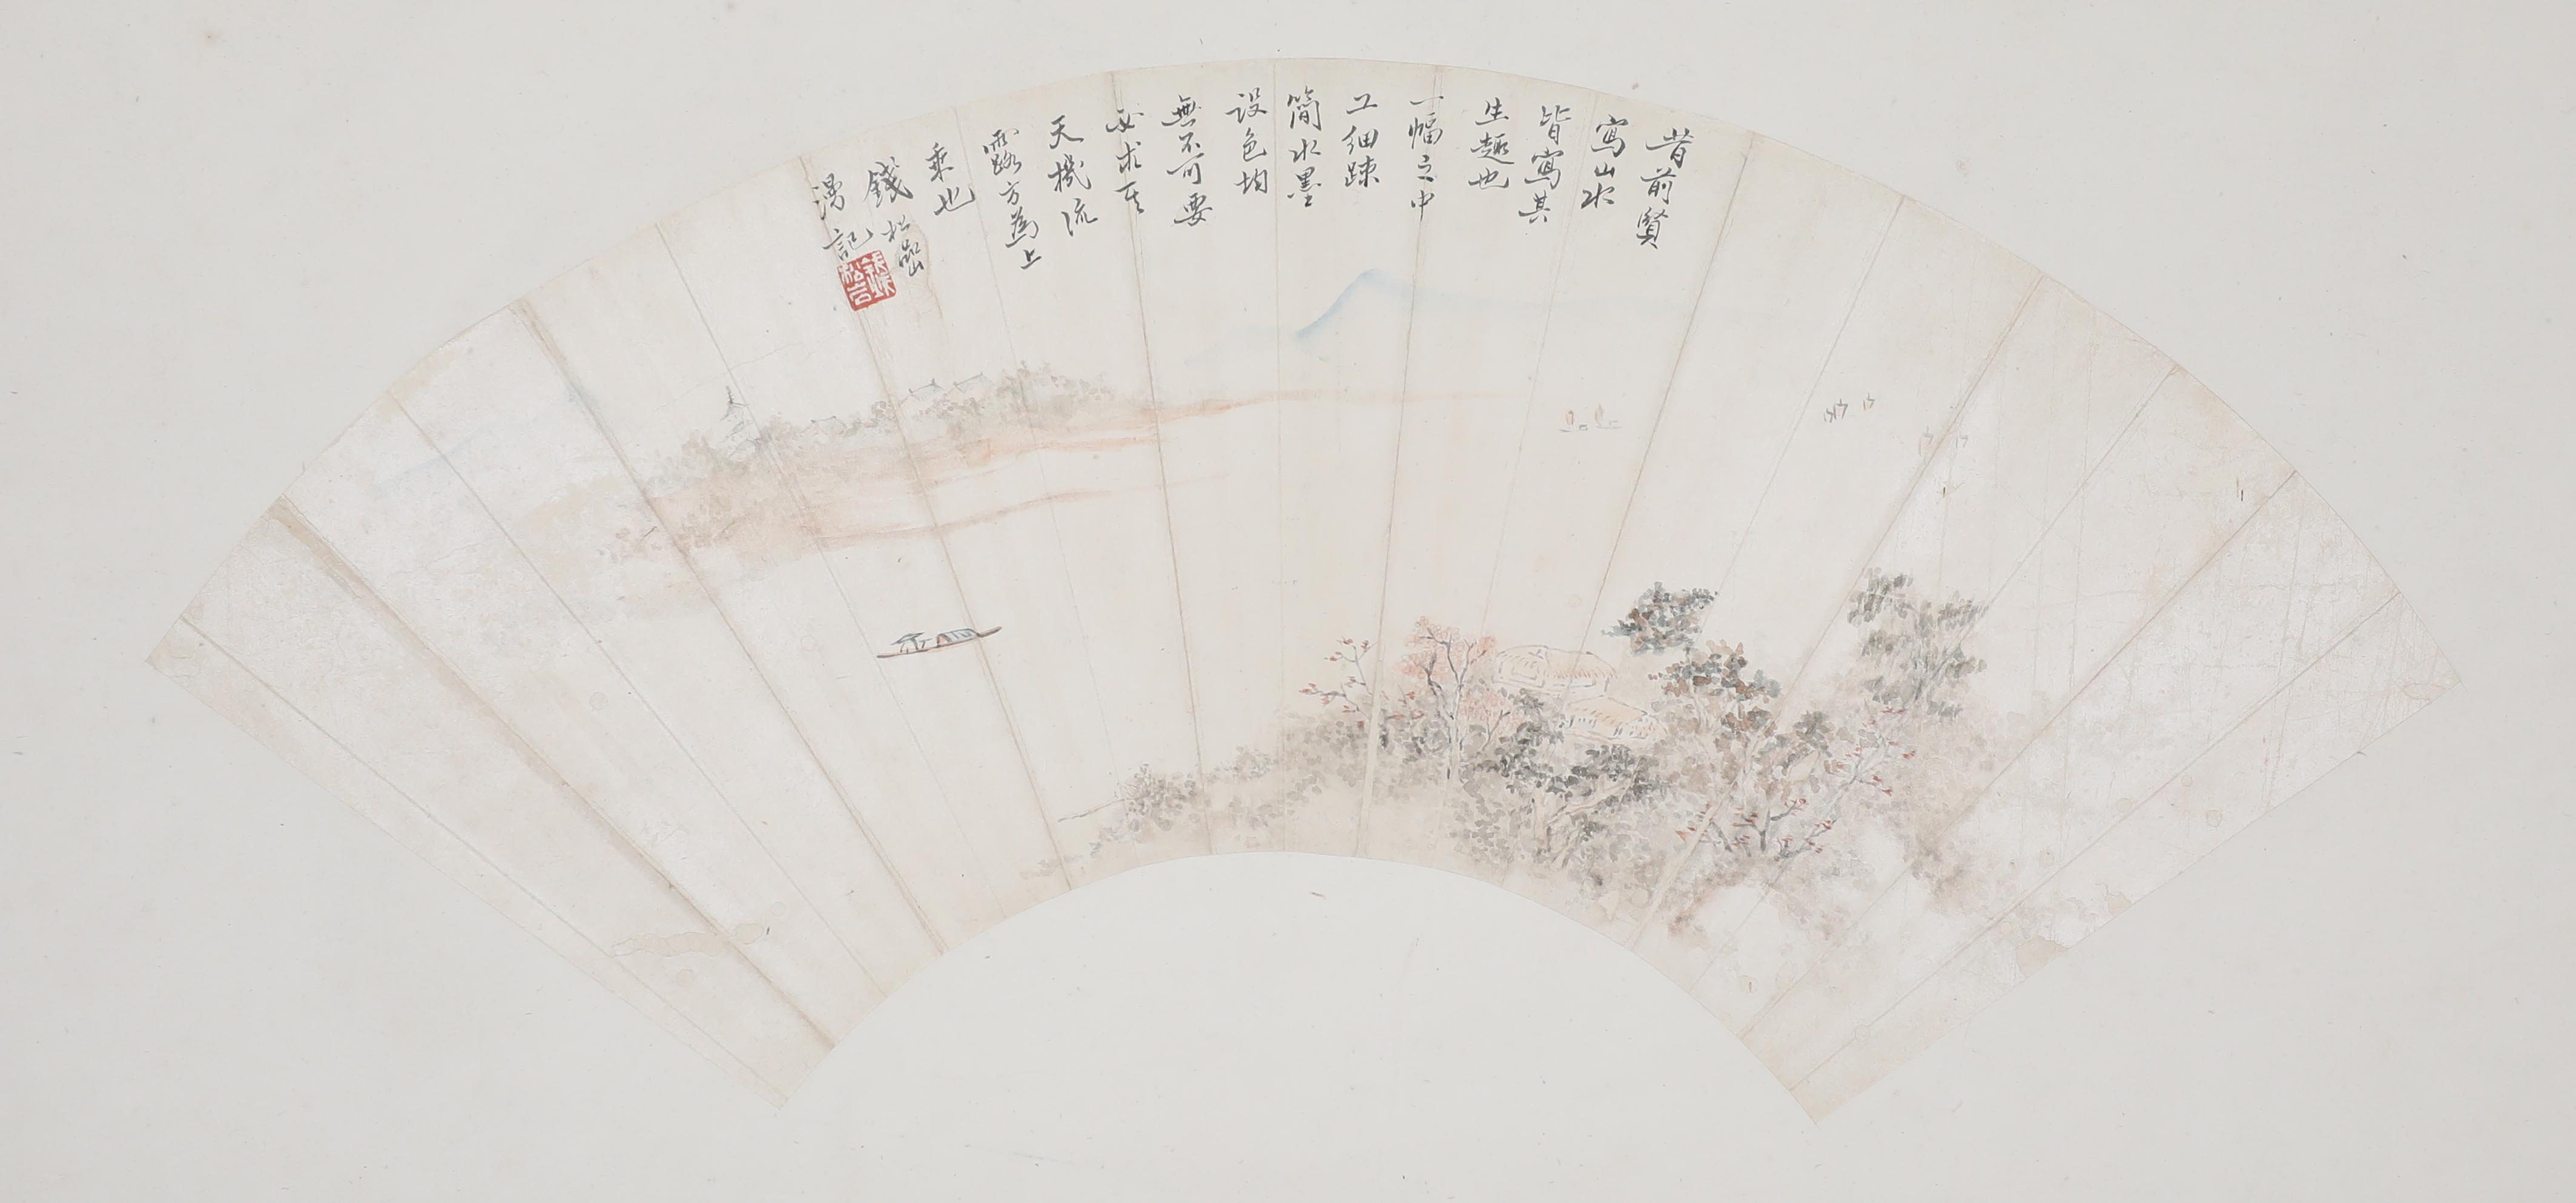 昔前賢
寫山水
皆寫其
生趣也
一幅之中
工細踈
簡水墨
設色均
無不可要
必求其
天機流
露方為上
乘也
錢松喦
漫記
錢松嵒